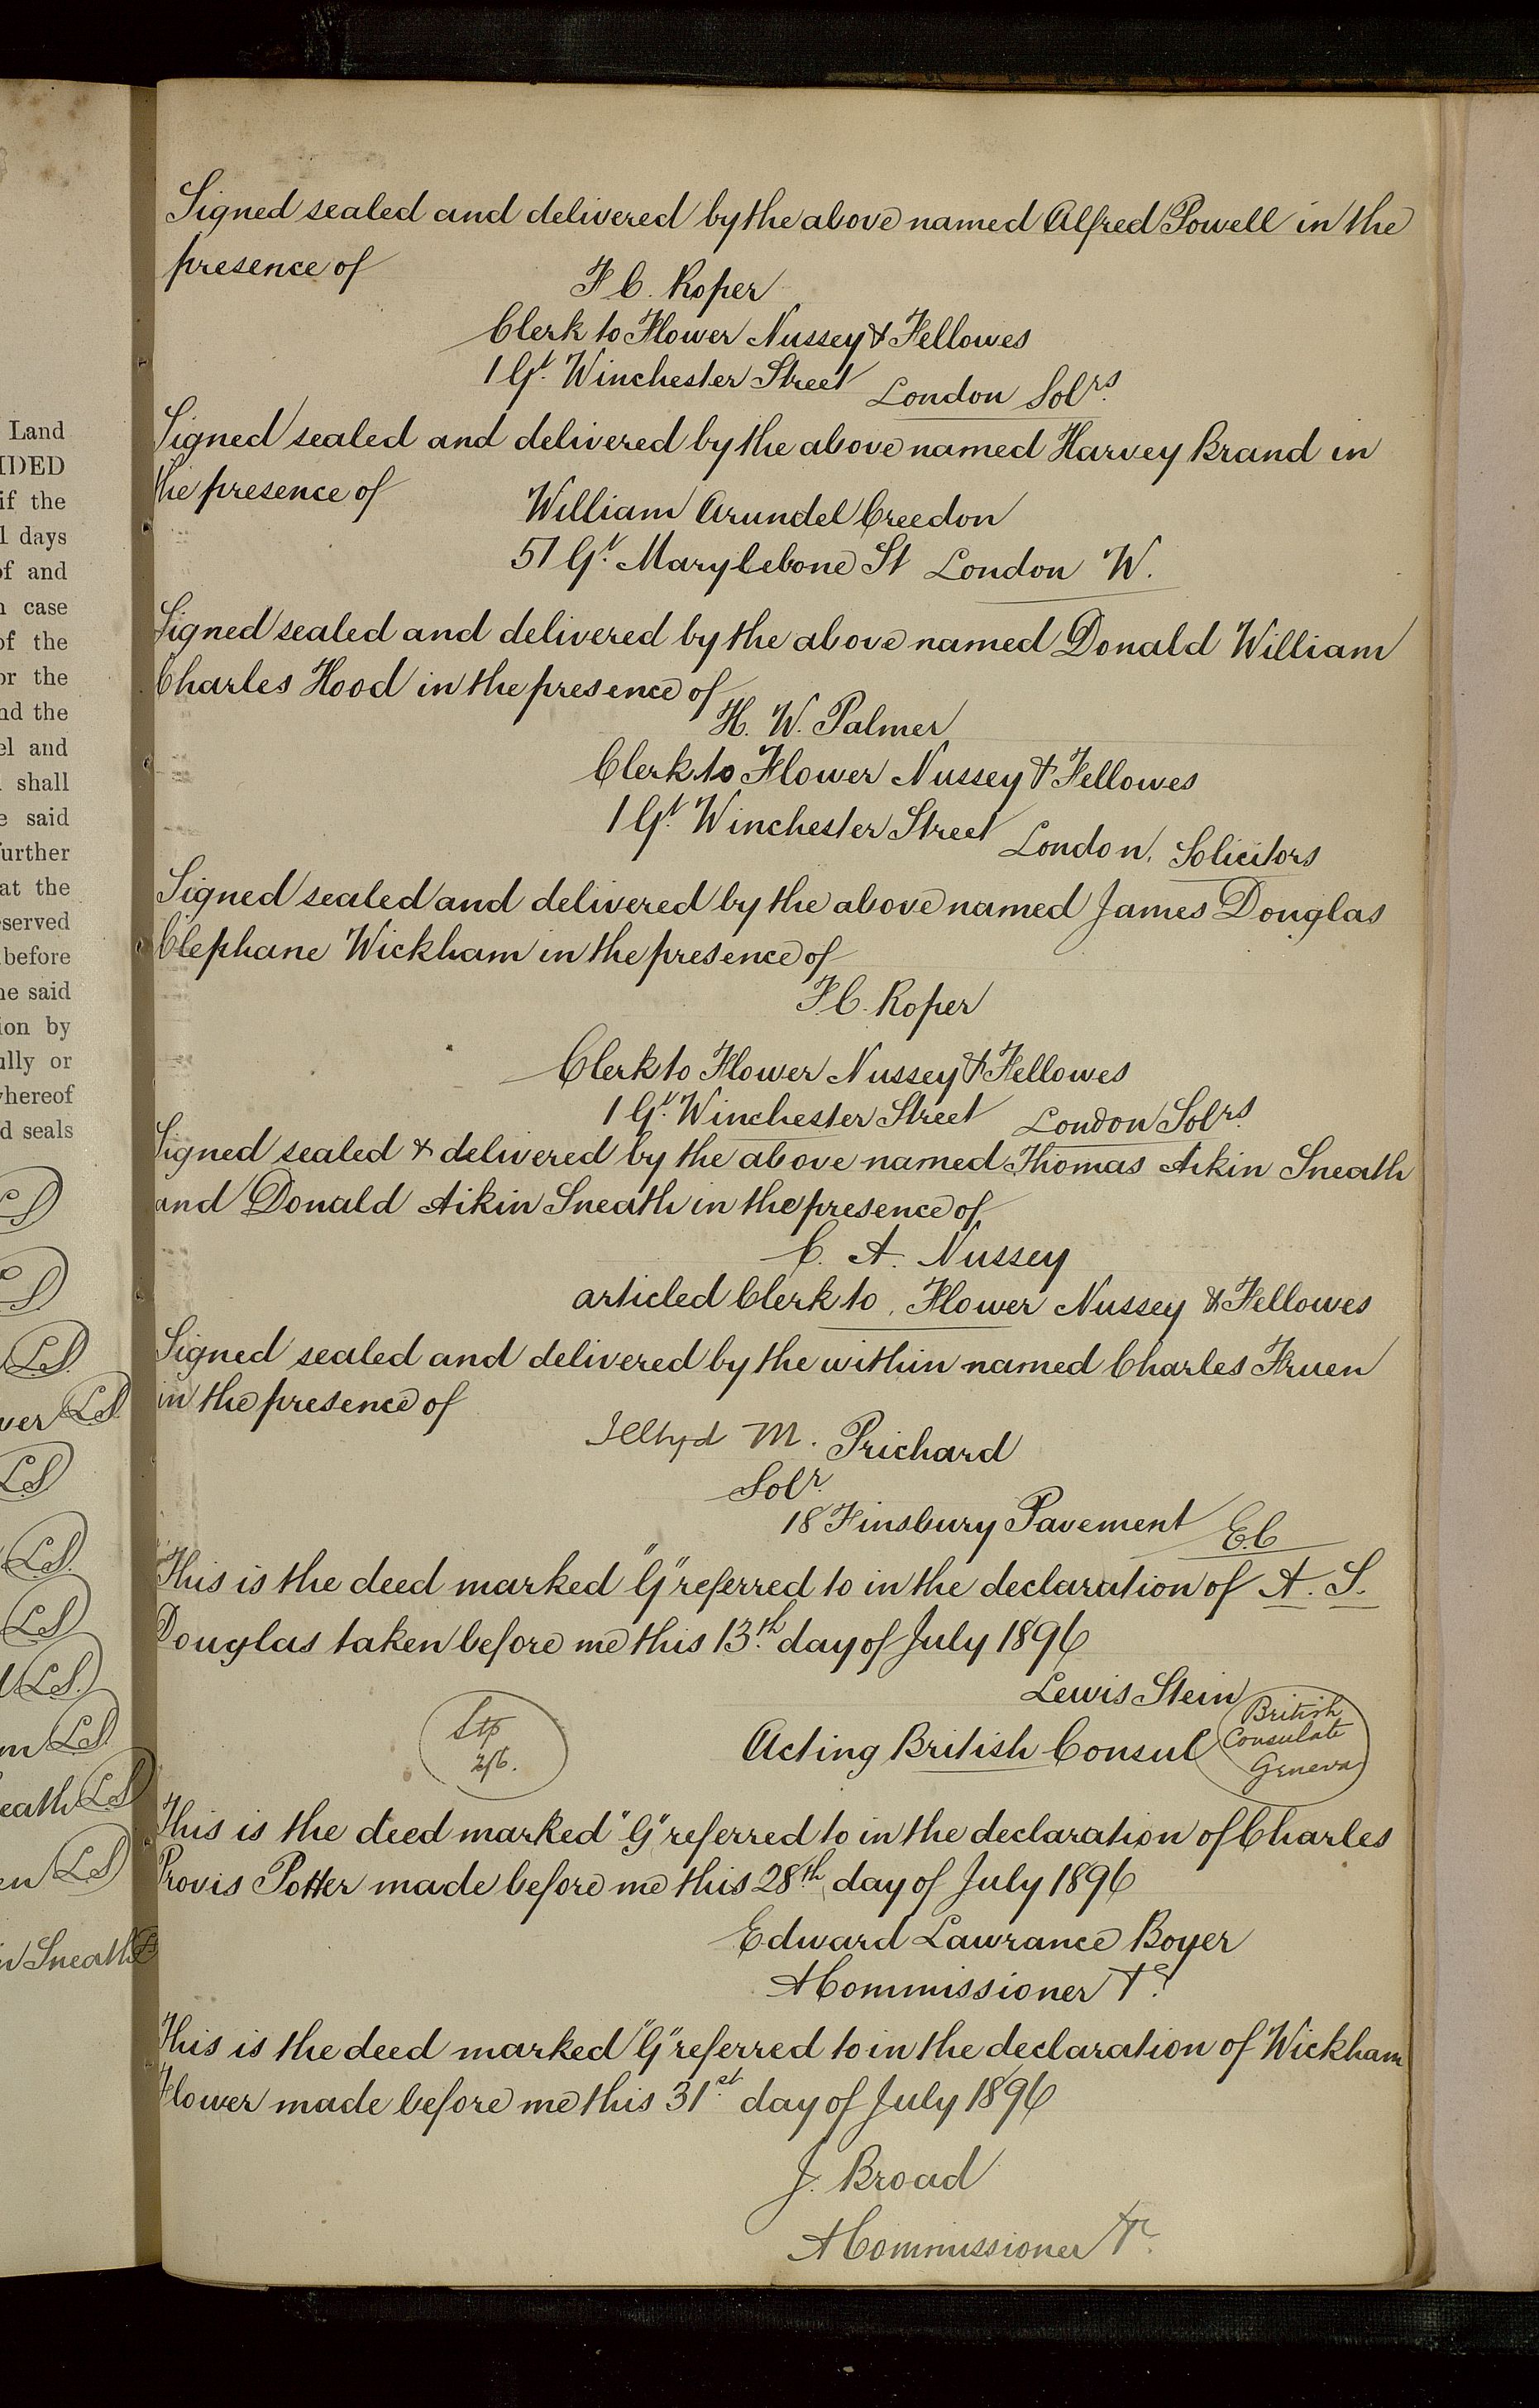 Land
IDED
if the
l days
of and
n case
of the
or the
nd the
el and
shall
e said
further
at the
served
before
he said
ion by
ully or
whereof
d seals
L.S
L.S
L.S
ver L.S
L.S
L.S
L.S
L.S
m L.S
eath L.S
en L.S
n Sneath L.S
Signed sealed and delivered by the above named Alfred Powell in the
presence of
F C. Roper
Clerk to Flower Nussey & Fellowes
1 Gt. Winchester Street London Solrs.
Signed sealed and delivered by the above named Harvey Brand in
the presence of
William Arundel Creedon
57 Gt. Marylebone St London W.
Signed sealed and delivered by the above named Donald William
Charles Hood in the presence of
H. W. Palmer
Clerk to Flower Nussey & Fellowes
1 Gt. Winchester Street London. Solicitors
Signed sealed and delivered by the above named James Douglas
Clephane Wickham in the presence of
F. C. Roper
Clerk to Flower Nussey & Fellowes
1 Gt. Winchester Street London Solrs.
Signed sealed & delivered by the above named Thomas Aikin Sneath
and Donald Aikin Sneath in the presence of
C. A. Nussey
articled Clerk to Flower Nussey & Fellowes
Signed sealed and delivered by the within named Charles Fruen
in the presence of
Illtyd M. Prichard
Solr.
18 Finsbury Pavement E.C
This is the deed marked "G" referred to in the declaration of A. S.
Douglas taken before me this 13th. day of July 1896
Lewis Stein
Acting British Consul
British
Consulate
Geneva
Stp
2/6.
This is the deed marked "G" referred to in the declaration of Charles
Provis Potter made before me this 28th day of July 1896
Edward Lawrance Boyer
A Commissioner &c.
This is the deed marked "G" referred to in the declaration of Wickham
Flower made before me this 31st. day of July 1896
J. Broad
A Commissioner &c.